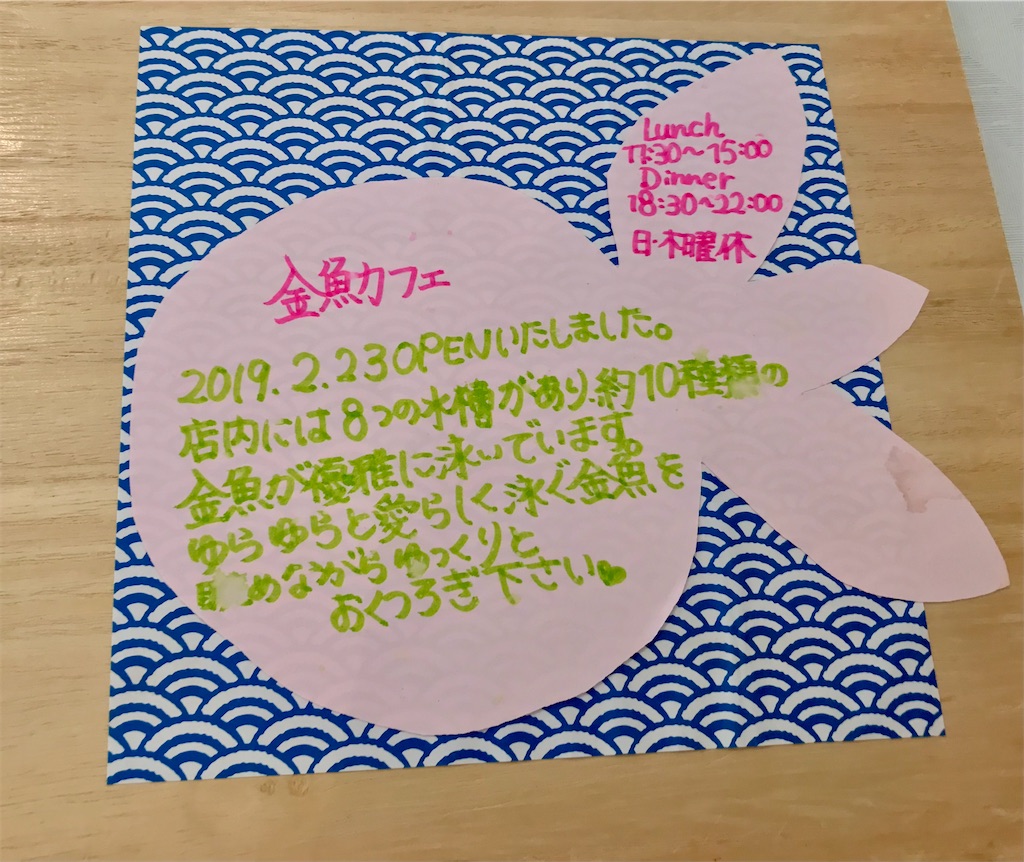 Lunch
11:30〜15:00
Dinner
18:30〜22:00
日・木曜休
金魚カフェ
2019.2.23 OPENいたしました。
店内には8つの水槽があり、約10種種の
金魚が優雅に泳いでいます。
ゆらゆらと愛らしく泳ぐ金魚を
めながらゆっくりと
おくつろぎ下さい♥